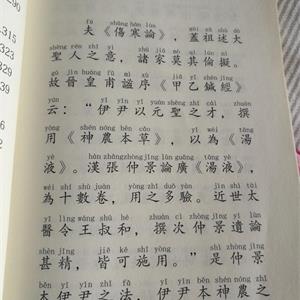 290
.315
323
329
39
fū shāng hán lùn
夫《傷寒論》，蓋祖述大
shèng rén zhī yì zhū jiā mò qí lún nǐ
聖人之意，諸家莫其倫擬。
gù jìn huáng fǔ mì xù jiǎ yǐ zhēn jīng
故晉皇甫謐序《甲乙鍼經》
yún yī yǐn yǐ yuán shèng zhī cái zhuàn
云：“伊尹以元聖之才，撰
yòng shén nóng běn cǎo yǐ wéi tāng
用《神農本草》，以為《湯
yè hàn zhāng zhòng jǐng lùn guǎng tāng yè
液》。漢張仲景論廣《湯液》，
wéi shí shù juàn yòng zhī duō yàn jìn shì tài
為十數卷，用之多驗。近世太
yī lìng wáng shū hé zhuàn cì zhòng jǐng yí lùn
醫令王叔和，撰次仲景遺論
shèn jīng jiē kě shī yòng shì zhòng jǐng
甚精，皆可施用。”是仲景
běn yī yǐn zhī fǎ yī yǐn běn shén nóng zhī
本伊尹之法，伊尹本神農之